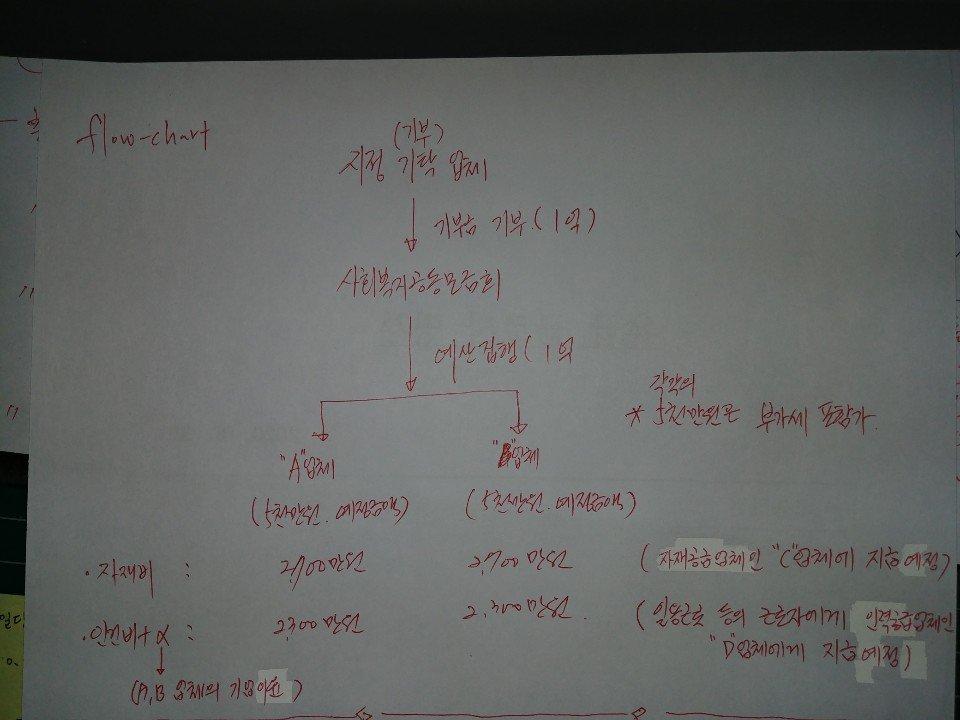 flow-chart
(기부)
지정 기탁 업체
기부금 기부 (1억)
사회복지공동모금회
예산집행 (1억
각각의
* 5천만원은 부가세 포함가.
"A"업체
"B"업체
(5천만원. 예정금액)
(5천만원. 예정금액)
· 자재비 : 2,700만원 2,700만원 (자재공급업체인 "C"업체에 지급예정)
· 인건비+α : 2,300만원 2,300만원. (일용근로 등의 근로자에게 인력공급업체인
"D"업체에게 지급예정)
(A,B 업체의 기업이윤)